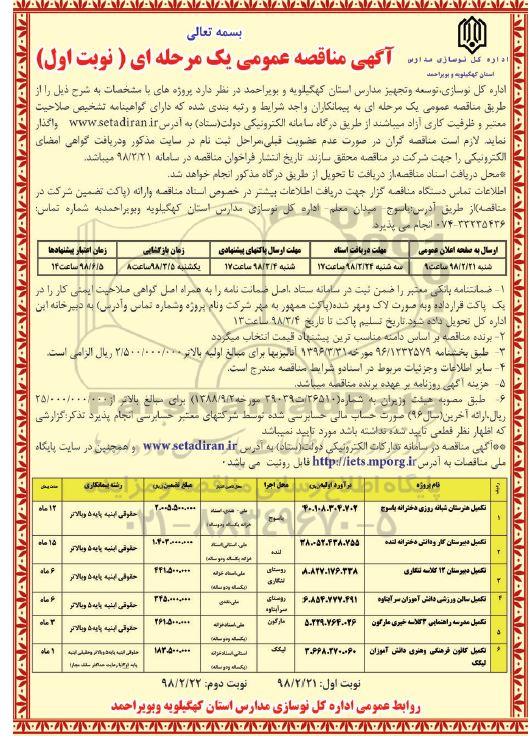 بسمه تعالی
آگهی مناقصه عمومی یک مرحله ای ( نوبت اول)
اداره کل نوسازی مدارس
استان کهگیلویه و بویراحمد
اداره کل نوسازی،توسعه وتجهیز مدارس استان کهگیلویه و بویراحمد در نظر دارد پروژه های با مشخصات به شرح ذیل را از
طریق مناقصه عمومی یک مرحله ای به پیمانکاران واجد شرایط و رتبه بندی شده که دارای گواهینامه تشخیص صلاحیت
معتبر و ظرفیت کاری آزاد میباشند از طریق درگاه سامانه الکترونیکی دولت(ستاد) به آدرس www.setadiran.ir واگذار
نماید. لازم است مناقصه گران در صورت عدم عضویت قبلی،مراحل ثبت نام در سایت مذکور ودریافت گواهی امضای
الکترونیکی را جهت شرکت در مناقصه محقق سازند. تاریخ انتشار فراخوان مناقصه در سامانه ۹۸/۲/۲۱ میباشد.
*محل دریافت اسناد مناقصه،از دریافت تا تحویل از طریق درگاه مذکور انجام خواهد شد.
اطلاعات تماس دستگاه مناقصه گزار جهت دریافت اطلاعات بیشتر در خصوص اسناد مناقصه وارائه (پاکت تضمین شرکت در
مناقصه)از طریق آدرس:یاسوج میدان معلم- اداره کل نوسازی مدارس استان کهگیلویه وبویراحمدبه شماره تماس:
۰۷۴-۳۳۲۳۵۴۳۶ انجام می پذیرد.
ارسال به صفحه اعلان عمومی مهلت دریافت اسناد مهلت ارسال پاکتهای پیشنهادی زمان بازگشایی زمان اعتبار پیشنهادها
شنبه ۹۸/۲/۲۱ساعت۹ سه شنبه ۹۸/۲/۲۴ساعت۱۷ شنبه ۹۸/۳/۴ ساعت۱۷ یکشنبه ۹۸/۳/۵ساعت۸ ۹۸/۶/۵ ساعت۱۴
۱- ضمانتنامه بانکی معتبر را ضمن ثبت در سامانه ستاد ،اصل ضمانت نامه را به همراه اصل گواهی صلاحیت ایمنی کار را در
یک پاکت قرارداده وبه صورت لاک ومهر شده(پاکت ممهور به مهر شرکت ونام پروژه وشماره تماس وآدرس) به دبیرخانه این
اداره کل تحویل داده شود.تاریخ تسلیم پاکت تا تاریخ ۹۸/۳/۴ ساعت۱۳
۲- برنده مناقصه بر اساس دامنه مناسب ترین پیشنهاد قیمت انتخاب میگردد
۳- طبق بخشنامه ۹۶/۱۲۳۲۵۷۹مورخه۱۳۹۶/۳/۳۱ آنالیزبها برای مبالغ اولیه بالاتر ۲/۵۰۰/۰۰۰/۰۰۰ ریال الزامی است.
۴- سایر اطلاعات وجزئیات مربوط در اسنادو شرایط مناقصه مندرج است.
۵- هزینه آگهی روزنامه بر عهده برنده مناقصه میباشد.
۶- طبق مصوبه هیئت وزیران به شماره ۱۳۸۸/۹/۲ برای مبالغ بالاتر از۲۵/۰۰۰/۰۰۰/۰۰۰
ریال،ارائه آخرین(سال۹۶) صورت حساب مالی حسابرسی شده توسط شرکتهای معتبر حسابرسی انجام پذیرد تذکر:گزارشی
که اظهار نظر قطعی تایید شده نداشته باشد مورد تایید نمیباشد
**آگهی مناقصه در سامانه تدارکات الکترونیکی دولت(ستاد) به آدرس www.setadiran.ir وهمچنین در سایت پایگاه
ملی مناقصات به آدرس http://iets.mporg.ir قابل رویت می باشد
ردیف نام پروژه برآورد اولیه محل اجرا مبلغ تضمین رشته پیمانکاری
۱ تکمیل هنرستان شبانه روزی دخترانه یاسوج ۴۰.۱۰۸.۳۰۴.۷۰۲ یاسوج ۲.۰۰۵.۵۰۰.۰۰۰ حقوقی ابنیه پایه۵ وبالاتر ۱۲ ماه
۲ تکمیل دبیرستان کار ودانش دخترانه لنده ۳۸.۰۵۲.۴۳۸.۷۵۵ لنده ۱.۴۰۳.۰۰۰.۰۰۰ حقوقی ابنیه پایه۵ وبالاتر ۱۵ ماه
۳ تکمیل دبیرستان ۱۲ کلاسه لنگاری ۸.۸۲۷.۱۷۶.۳۳۸ روستای لنگاری ۴۴۱.۵۰۰.۰۰۰ حقوقی ابنیه پایه۵ وبالاتر ۶ ماه
۴ تکمیل سالن ورزشی دانش آموزان سرآبتاوه ۶.۸۵۴.۷۷۷.۴۹۱ روستای سرآبتاوه ۳۴۵.۰۰۰.۰۰۰ حقوقی ابنیه پایه۵ وبالاتر ۶ ماه
۵ تکمیل مدرسه راهنمایی ۳کلاسه خیری مارگون ۵.۲۲۹.۷۶۴.۰۲۶ مارگون ۲۶۱.۵۰۰.۰۰۰ حقوقی ابنیه پایه۵ وبالاتر ۳ ماه
۶ تکمیل کانون فرهنگی وهنری دانش آموزان لیکک ۳.۶۶۸.۲۷۰.۰۶۰ لیکک ۱۸۳.۵۰۰.۰۰۰ ۱ ماه
نوبت اول: ۹۸/۲/۲۱ نوبت دوم: ۹۸/۲/۲۲
روابط عمومی اداره کل نوسازی مدارس استان کهگیلویه وبویراحمد